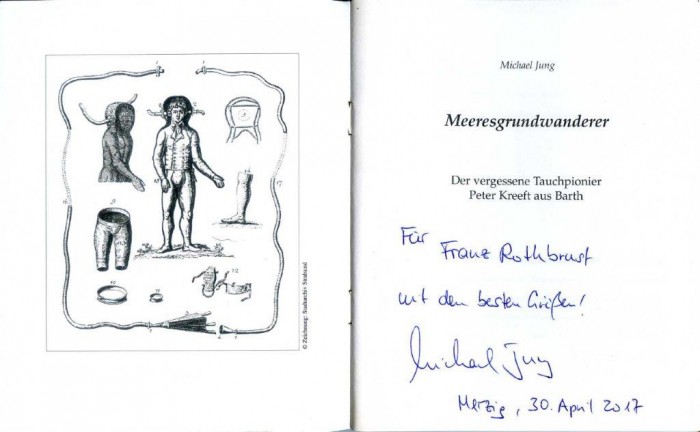 © Zeichnung: Stadtarchiv Stralsund
Michael Jung
Meeresgrundwanderer
Der vergessene Tauchpionier
Peter Kreeft aus Barth
Für
Franz Rothbrust
mit den besten Grüßen!
Michael Jung
Merzig, 30. April 2017